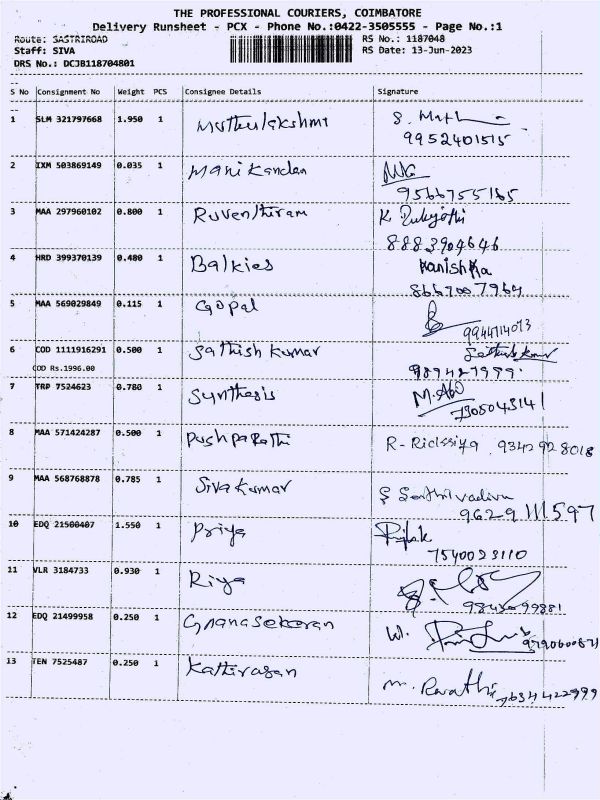 THE PROFESSIONAL COURIERS, COIMBATORE
Delivery Runsheet - PCX - Phone No.:0422-3505555 - Page No.:1
Route: SASTRIROAD
RS No.: 1187048
Staff: SIVA
RS Date: 13-Jun-2023
DRS No.: DCJB118704801
S No Consignment No Weight PCS Consignee Details Signature
1 SLM 321797668 1.950 1 Muthulakshmi
9952401515
2 IXM 503869149 0.035 1 Manikandan
9566755165
3 MAA 297960102 0.800 1 Ruventhiram K.
8883904646
4 HRD 399370139 0.480 1 Balkies Kanishka
8667007964
5 MAA 569029849 0.115 1 Gopal
9944114013
6 COD 1111916291 0.500 1 Sathish Kumar Sathish Kumar
COD Rs.1996.00
7 TRP 7524623 0.780 1 Synthesis
7305043141
8 MAA 571424287 0.500 1 9342928018
9 MAA 568768878 0.785 1 Siva Kumar
9629111597
10 EDQ 21500407 1.550 1 Priya
7540023110
11 VLR 3184733 0.930 1 Riya
12 EDQ 21499958 0.250 1 Gnanasekaran
13 TEN 7525487 0.250 1 Kathiravan
7634422999